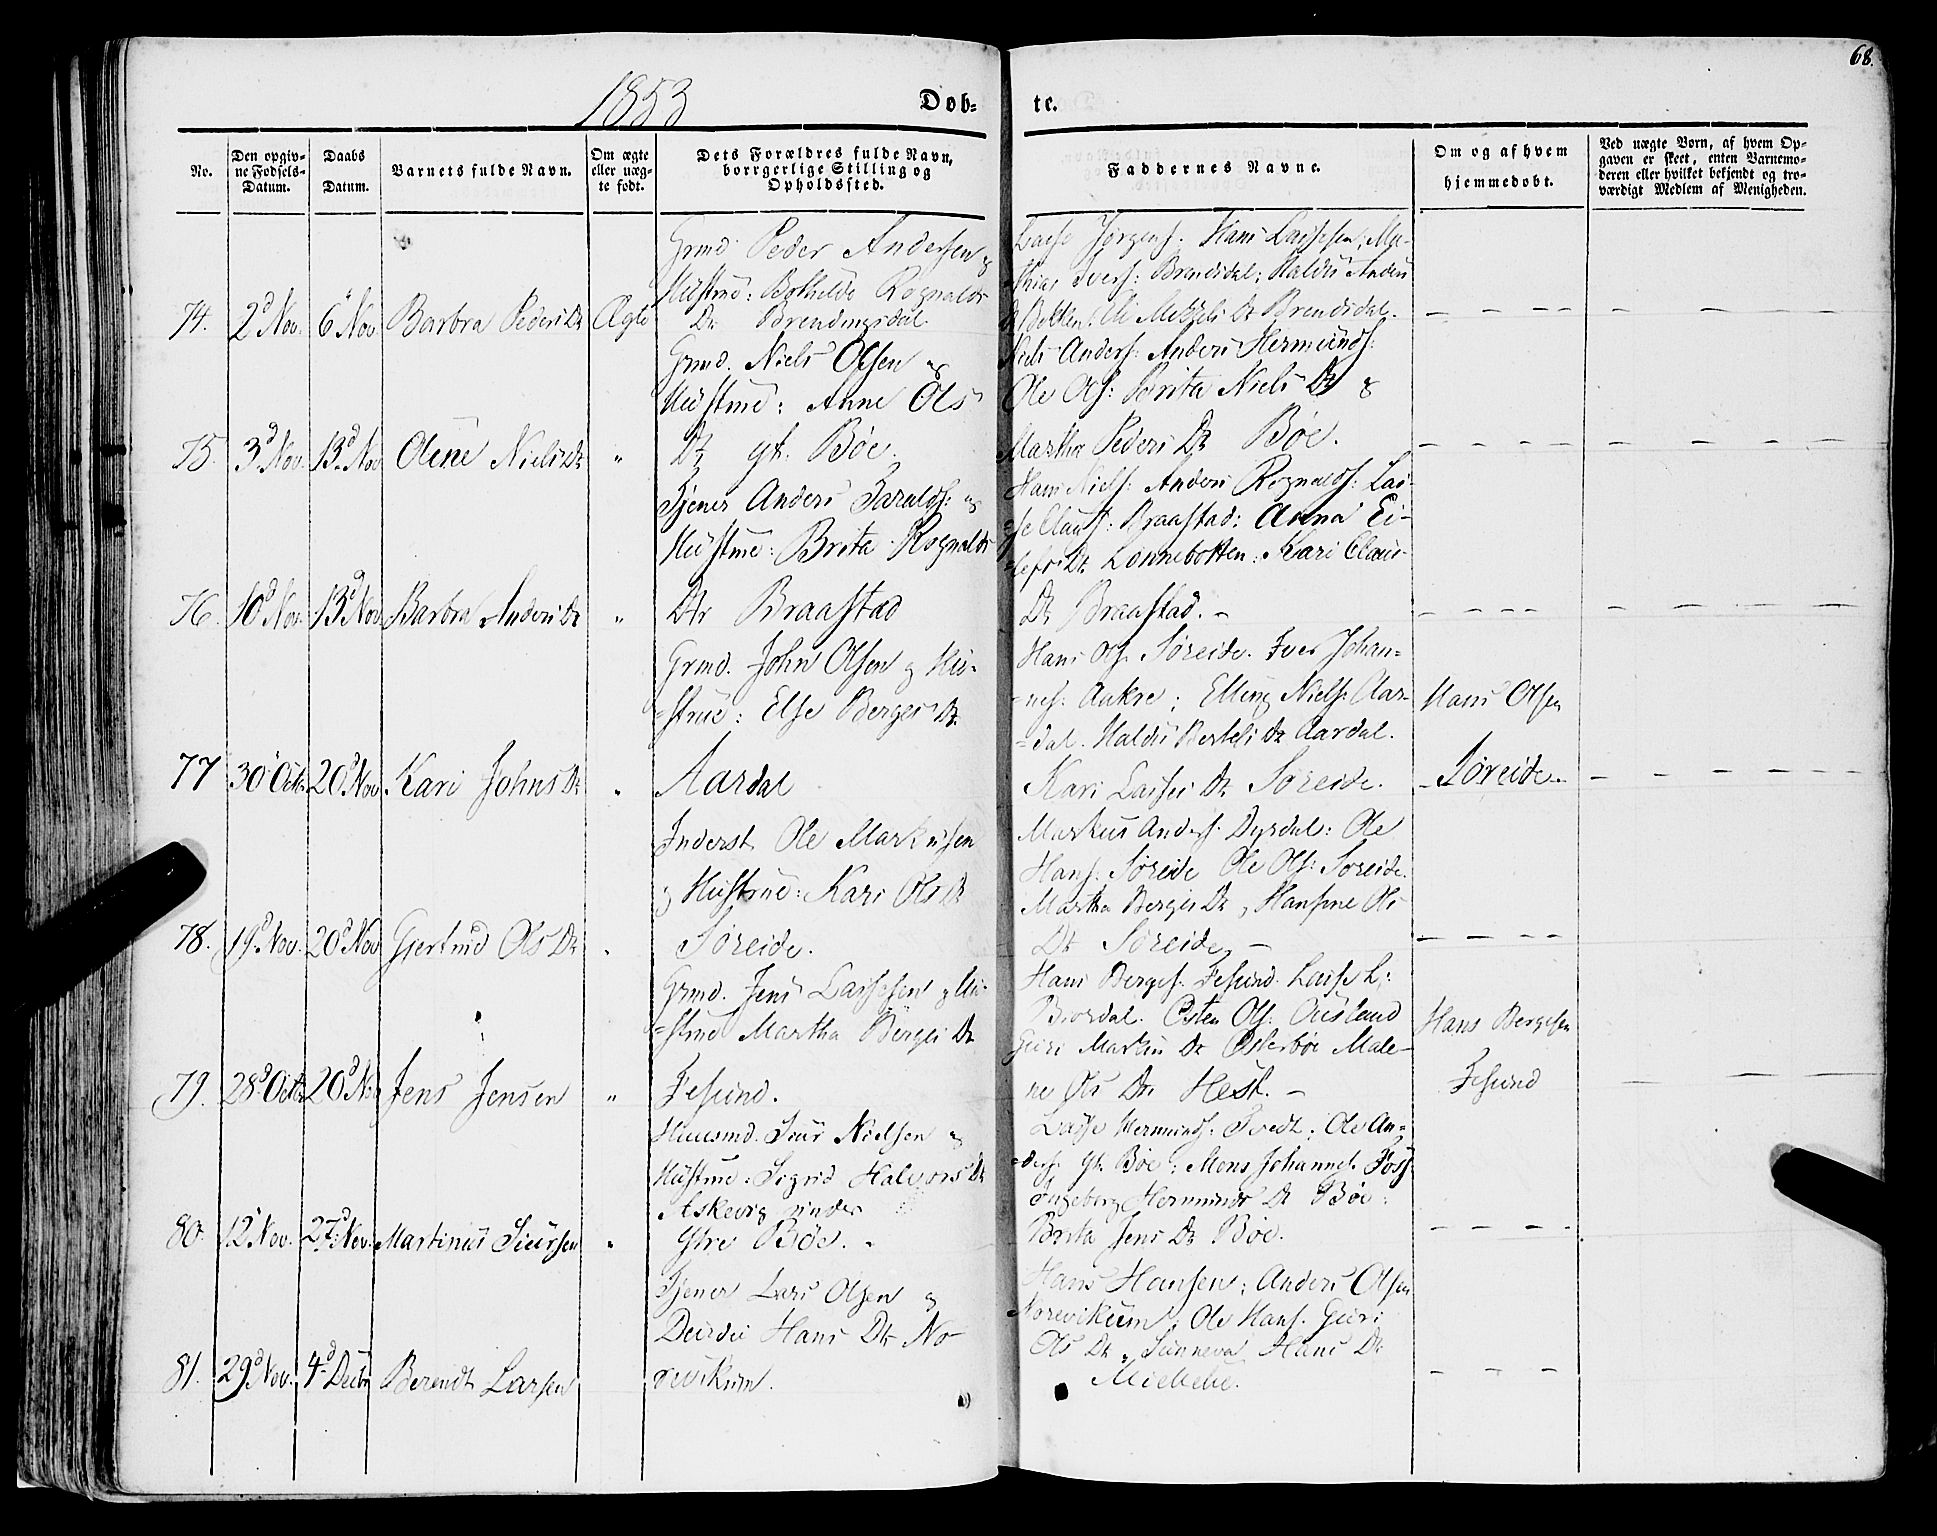 68.
1853
Dob-
te.
No.
Den opgiv-
ne Fodsels-
Datum.
Daabs
Datum.
Barnets fulde Navn.
Om ægte
eller uæg-
te født.
Dets Forældres fulde Navn,
borrgerlige Stilling og
Opholdssted.
Faddernes Navne.
Om og af hvem
hjemmedobt.
Ved uægte Born, af hvem Op-
gaven er skeet, enten Barnemo-
deren eller hvilket bekjendt og tro-
værdigt Medlem af Menigheden.
74. 2d Nov. 6 Nov Barbra Peders Dr Ægte
Grmd. Peder Andersen &
Hustrue: Bothilde Rognalds
Dr Brendingsdal
Lasse Jørgens. Hans Lassesen, Ma-
thias Ivers: Brendsdal; Haldis Anders
Dr Bekken, Mettheli Dr Brendsdal.
75. 3d Nov. 13d Nov Oline Niels Dr "
Grmd. Niels Olsen &
Hustrue: Anne Ols
Dr yt. Bøe
Niels Anders: Anders Hermunds:
Ole Ols: Brita Niels Dr &
Martha Peders Dr Bøe.
76. 10d Nov. 13d Nov. Barbra Anders Dr "
Tjener Anders Haralds: &
Hustrue: Brita Rognalds
Dtr Braastad
Hans Niels: Anders Rognalds: Las-
se Claus: Braastad: Anna Ei-
lefs Dr Lonnebotten: Kari Claus-
Dr Braastad. -
77 30 Octr. 20d Nov Kari Johns Dr "
Grmd. John Olsen & Hu-
strue: Else Berges Dr
Aardal
Hans Ols. Søreide. Iver Johan-
nes: Aakre; Elling Niels: Aar-
dal. Haldis Bertels Dr Aardal.
Kari Lasses Dr Søreide.
Hans Olsen
Søreide.
78. 19d Nov. 20d Nov Gjertrud Ols Dr "
Inderst Ole Markusen
& Hustrue: Kari Ols Dr
Søreide.
Markus Anders: Dyrdal: Ole
Hans: Søreide Ole Ols: Søreide.
Martha Berges Dr & Hansine Ols
Dr Søreide, -
79. 28d Octr 20d Nov Jens Jensen "
Grmd. Jens Lassesen & Hu-
strue Martha Berges Dr
Issund.
Hans Berges. Lasse L:
Biordal. Osten Ols: Ousland
Guri Markus Dr Osterbøe Male-
ne Ols Dr Hest. -
Hans Bergesen
80. 12 Nov. 27d Nov. Martinus Siursen "
Huusmd. Siur Nielsen &
Hustrue: Sigrid Halvors Dr
Askevig under
Ytre Bøe.
Lasse Hermunds: Tvedt; Ole An-
ders: yt. Bøe; Mons Johannes. Foss
Ingeborg Hermunds Dr Bøe:
Brita Jens Dr Bøe.
81. 29d Nov. 4d Decbr Berendt Larsen
Tjener Lars Olsen &
Hans Dr No-
revikum.
Hans Hansen; Anders Olsen
Norevikum, Ole Hans. Guri
Ols Dr, Sünneva Hans Dr